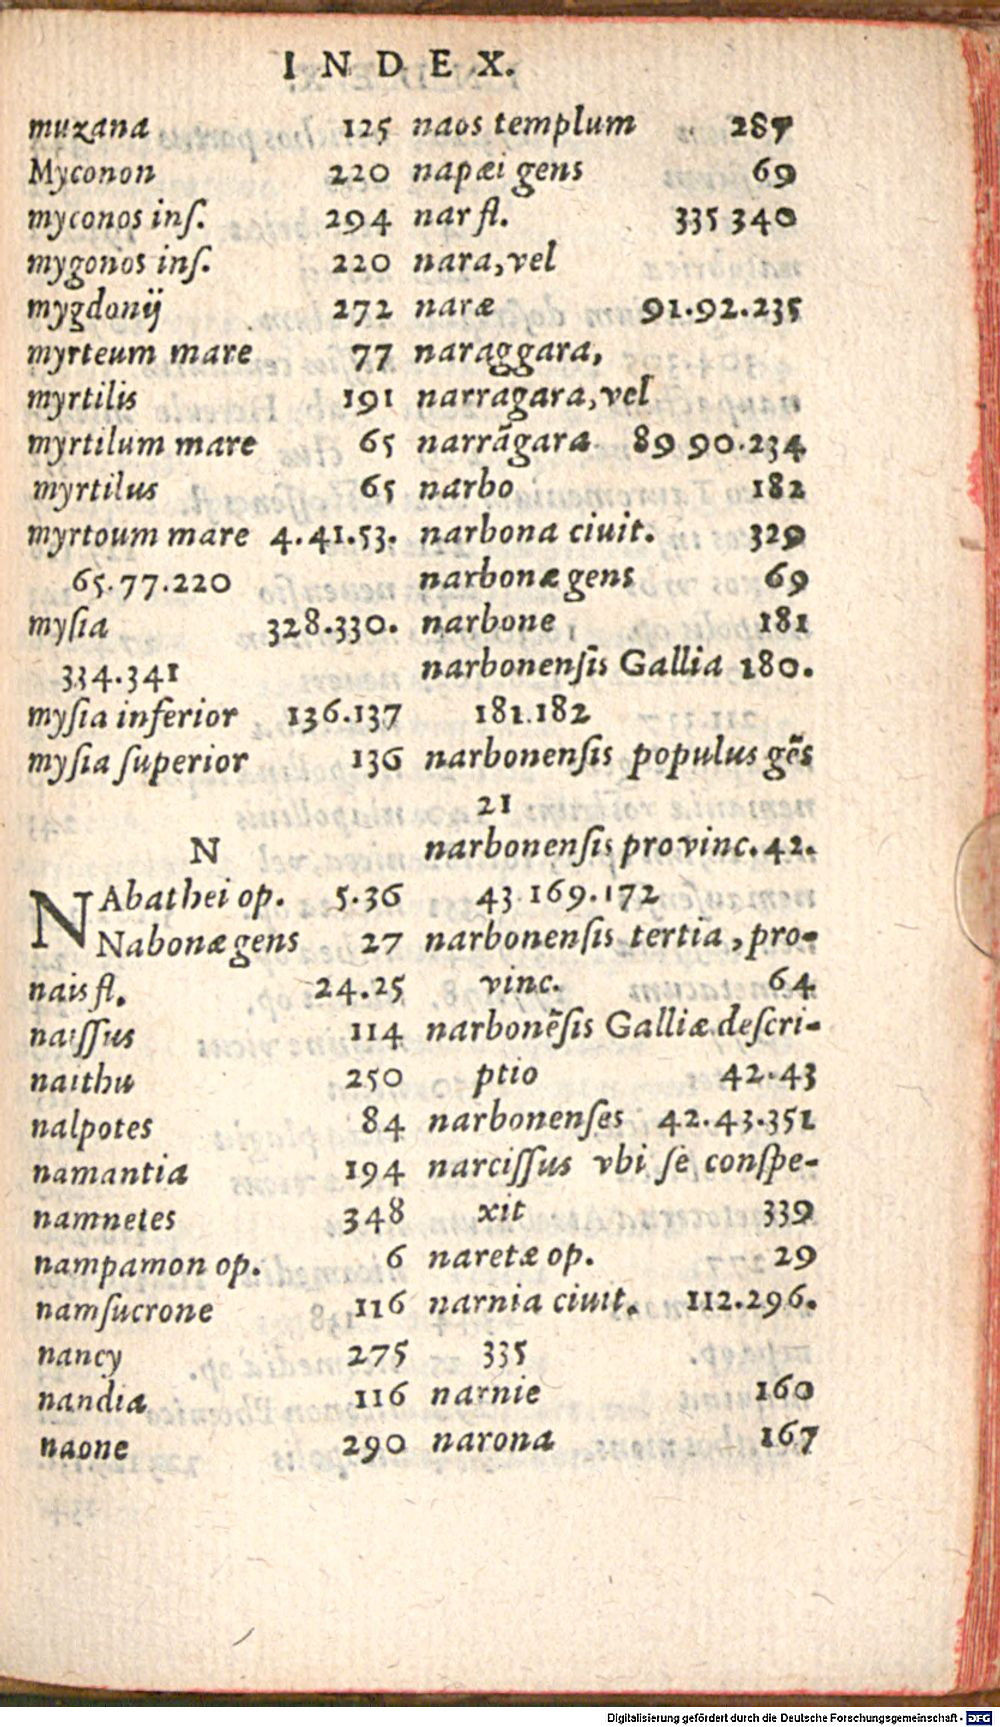 INDEX.
muzana 125
Myconon 220
myconos inſ. 294
mygonos inſ. 220
mygdonij 272
myrteum mare 77
myrtilis 191
myrtilum mare 65
myrtilus 65
myrtoum mare 4.41.53.
65.77.220
myſia 328.330.
334.341
myſia inferior 136.137
myſia ſuperior 136
N
NAbathei op. 5.36
Nabonæ gens 27
nais fl. 24.25
naiſſus 114
naithu 250
nalpotes 84
namantia 194
namnetes 348
nampamon op. 6
namſucrone 116
nancy 275
nandia 116
naone 290
naos templum 287
napæi gens 69
nar fl. 335 340
nara, vel
naræ 91.92.235
naraggara,
narragara, vel
narrãgara 89 90.234
narbo 182
narbona ciuit. 329
narbonæ gens 69
narbone 181
narbonenſis Gallia 180.
181.182
narbonenſis populus gẽs
21
narbonenſis provinc. 42.
43 169.172
narbonenſis tertia, pro-
vinc. 64
narbonẽſis Galliæ deſcri-
ptio 42.43
narbonenſes 42.43.351
narciſſus vbi ſe conſpe-
xit 339
naretæ op. 29
narnia ciuit. 112.296.
335
narnie 160
narona 167
Digitalisierung gefördert durch die Deutsche Forschungsgemeinschaft - DFG